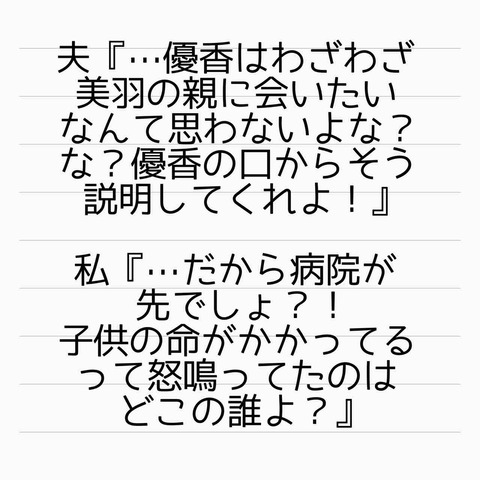 夫『…優香はわざわざ
美羽の親に会いたい
なんて思わないよな？
な？優香の口からそう
説明してくれよ！』
私『…だから病院が
先でしょ？！
子供の命がかかってる
って怒鳴ってたのは
どこの誰よ？』